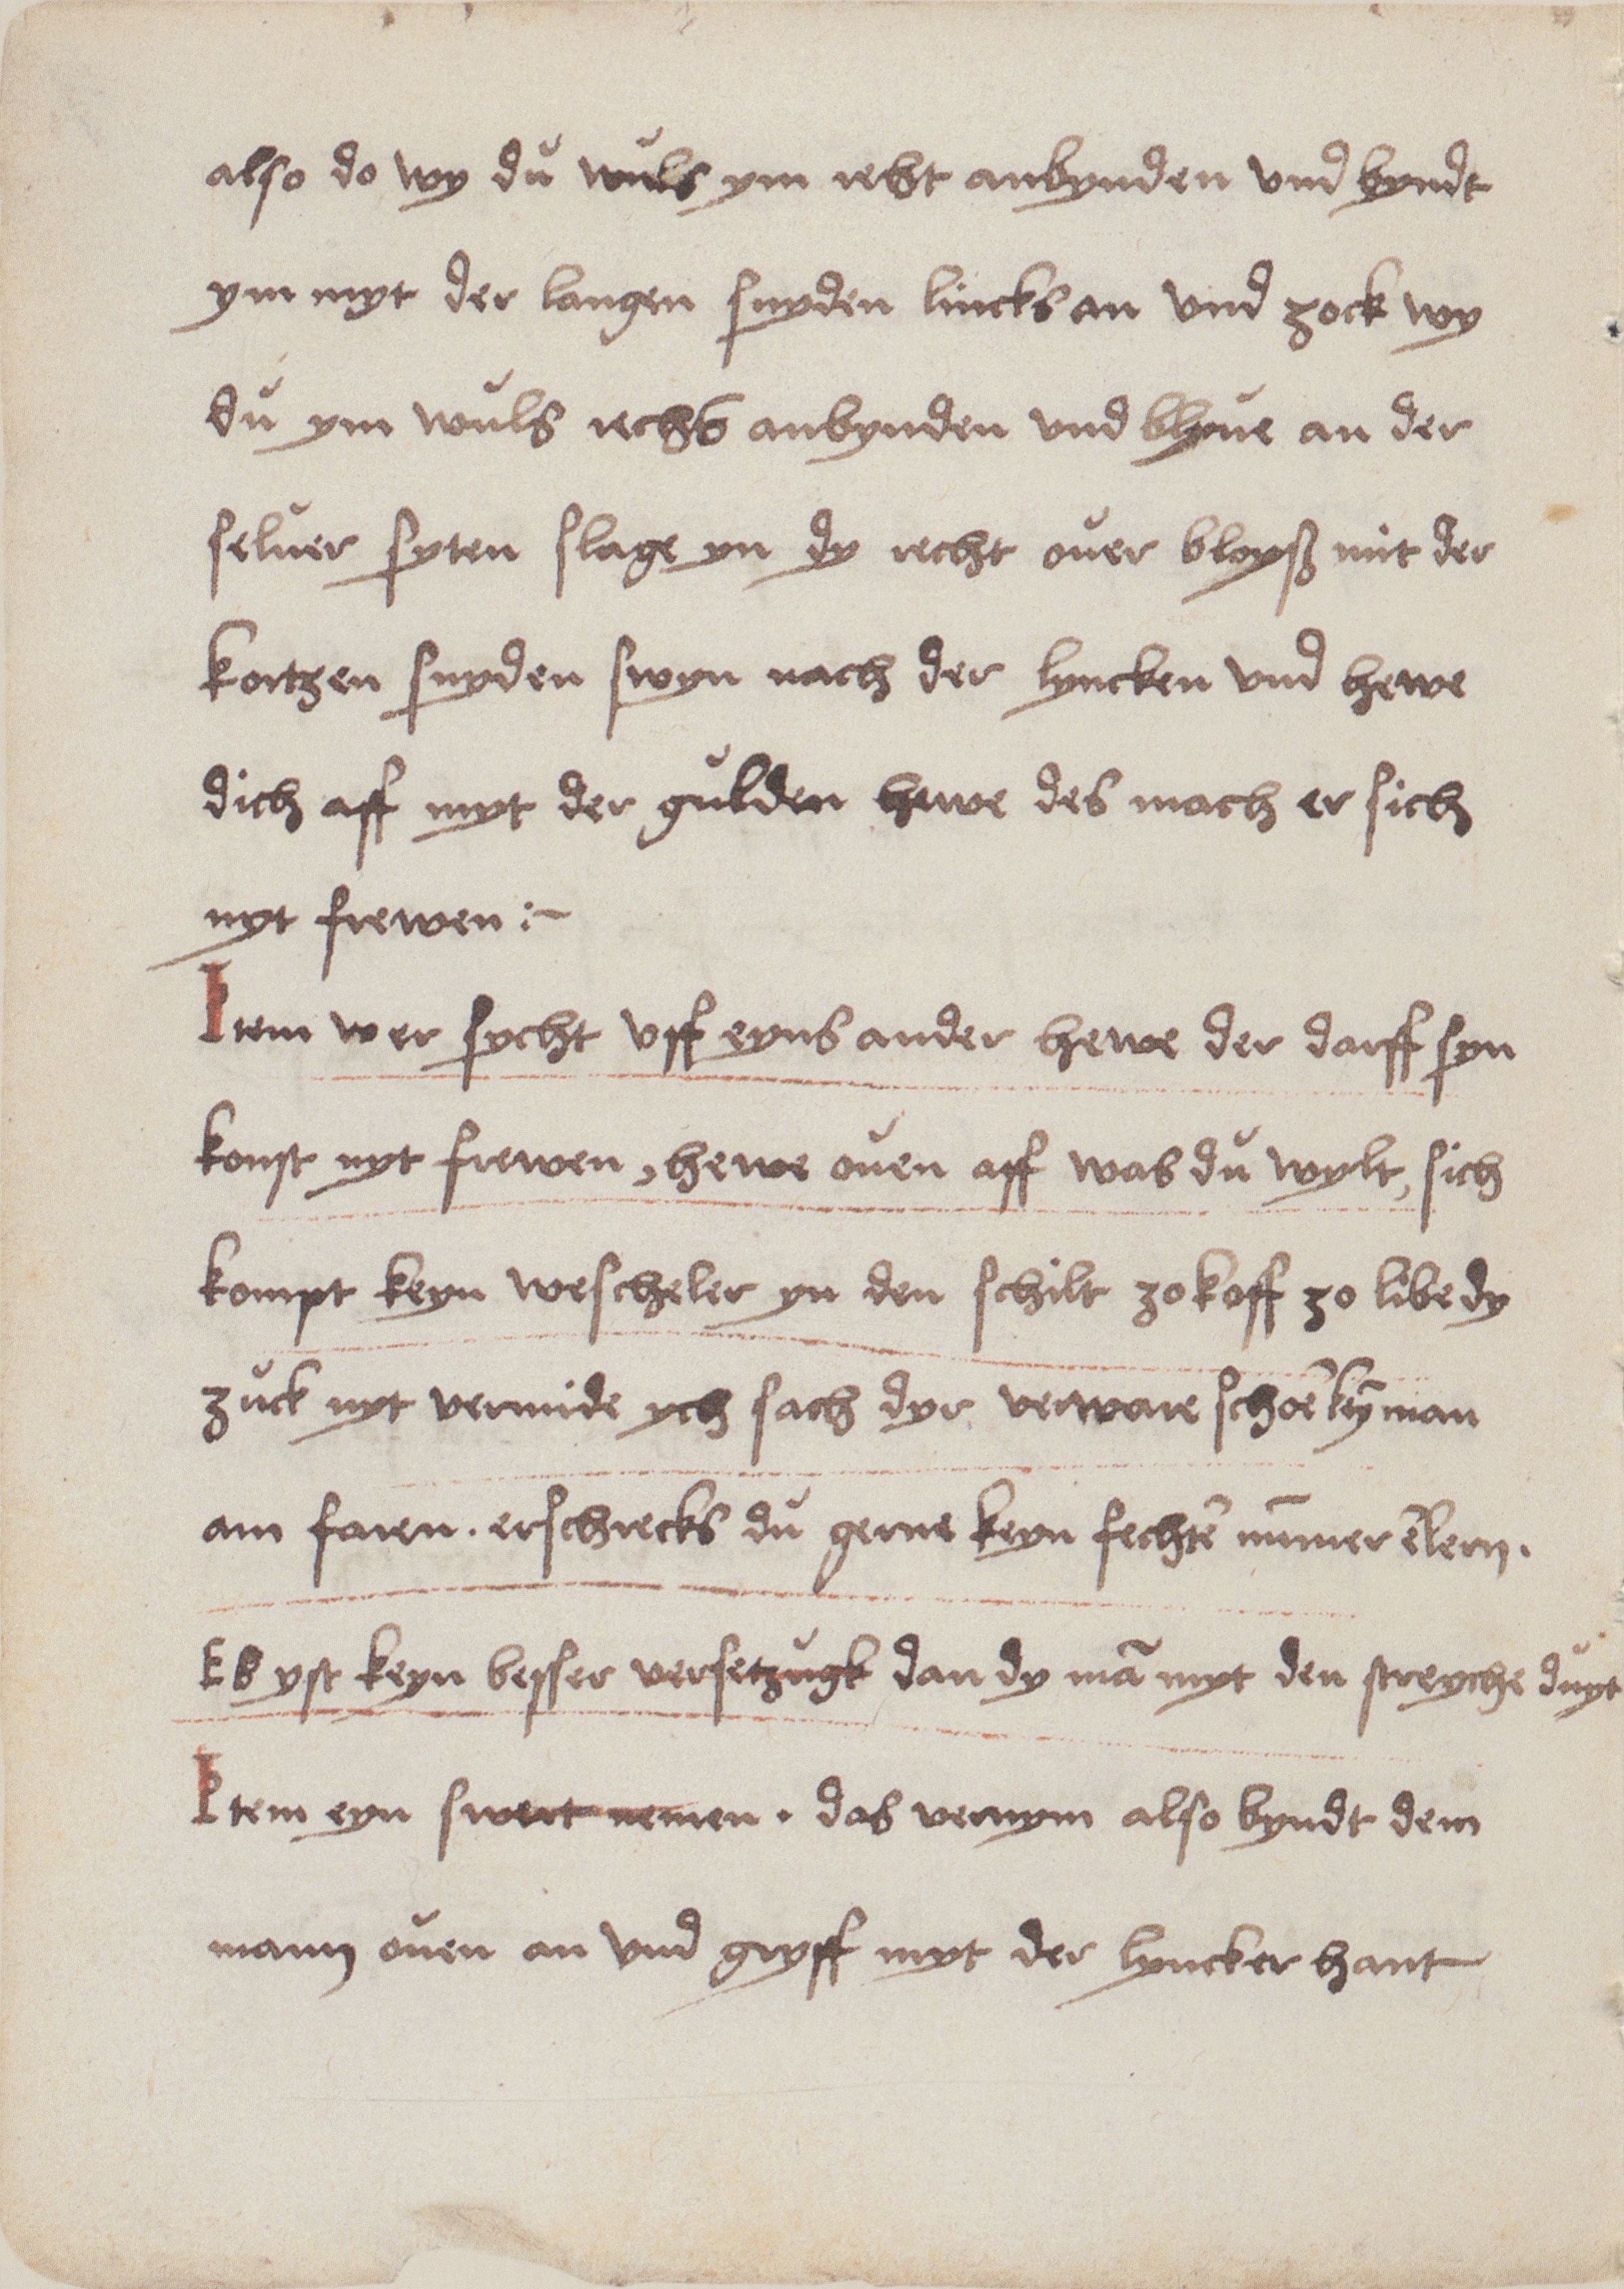 also do wy du wuls ym recht anbynden vnd byndt
ym myt der langen snyden lincks an vnd zock wy
du ym wuls rechs anbynden vnd blyue an der
seluer syten slage yn dy recht ouer bloyß mit der
kortzen snyden swyn nach der lyncken vnd hewe
dich aff myt der gulden hewe des mach er sich
nyt frewen :~
Item wer sycht vff eyns ander hewe der darff syn
konst nyt frewen, hewe ouen aff was du wylt, sich
kompt keyn wescheler yn den schilt zo koff zo libe dy
zuck nyt vermide ych sach dyr verware schoē ky̅ man
am faren . erschrecks du gerne keyn fechtē nu̅mer ēlern .
Es yst keyn besser versetzugk dan dy mā myt den streyche duyt
Item eyn swert nemen . das vernym also byndt dem
mann ouen an vnd gryff myt der lyncker hant